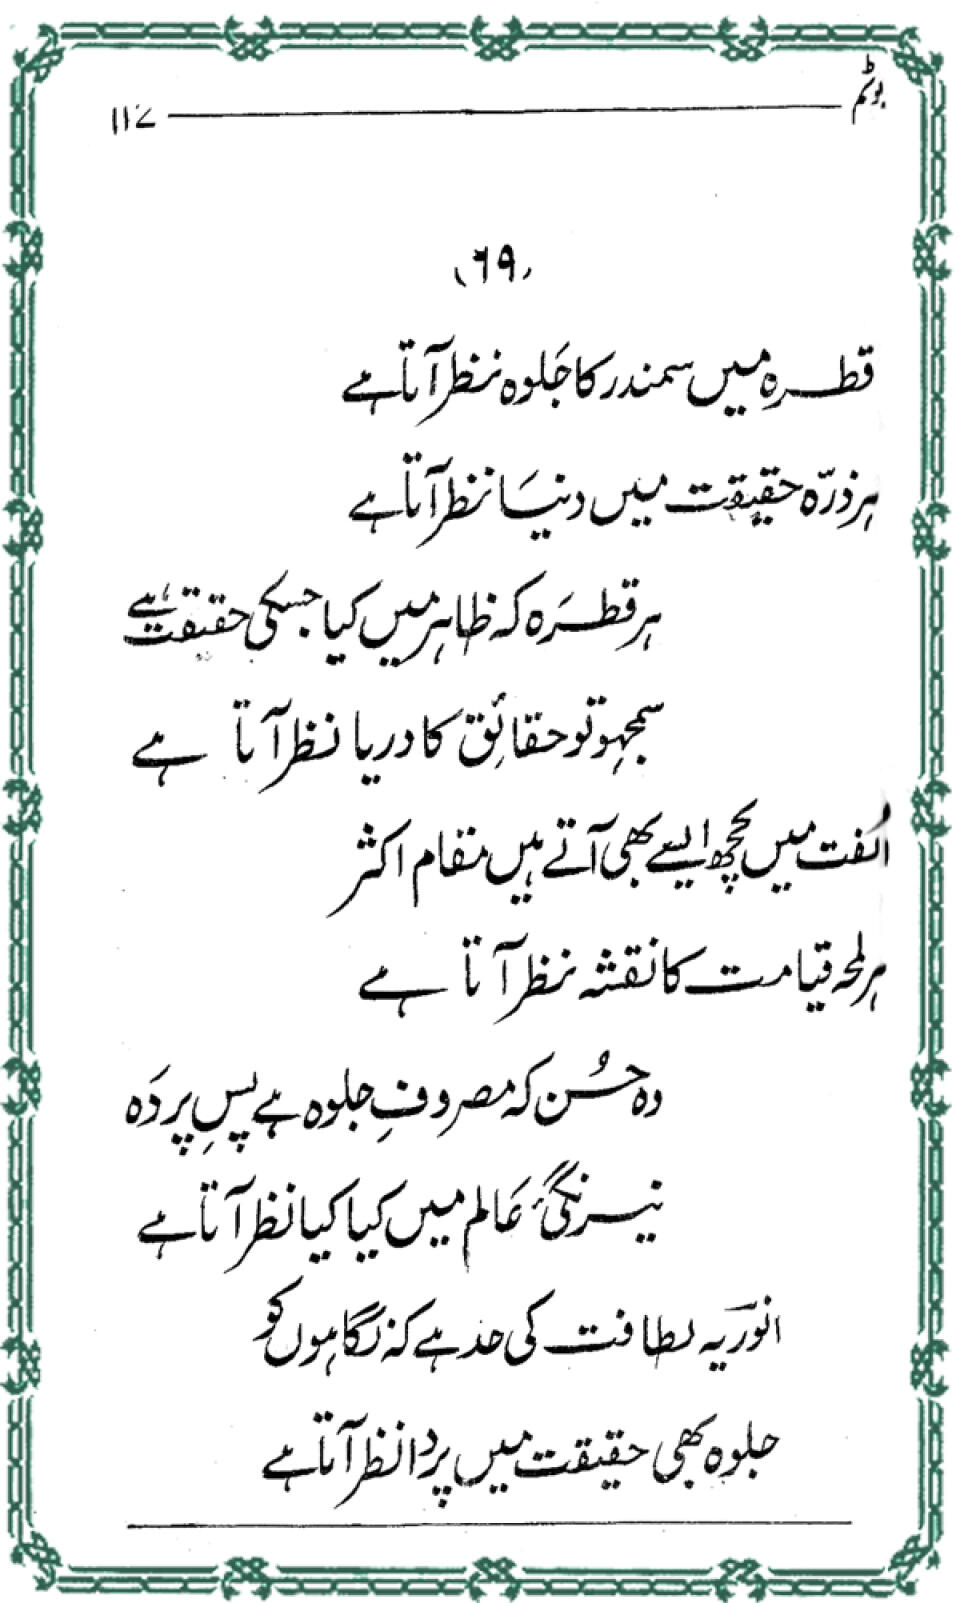 بوٹم ۱۱۷
(۶۹)
قطرہ میں سمندر کا جَلوہ نظر آتا ہے
ہر ذرّہ حقیقت میں دنیَا نظر آتا ہے
ہر قطرَہ کہ ظاہر میں کیا جسکی حقیقت ہے
سمجہو تو حقائق کا دریا نظر آتا ہے
اُلفت میں کچھ ایسے بھی آتے ہیں مقام اکثر
ہر لمحہ قیامت کا نقشہ نظر آتا ہے
وہ حُسن کہ مصروفِ جلوہ ہے پسِ پردَہ
نیرنگیٔ عَالم میں کیا کیا نظر آتا ہے
انورؔ یہ لطافت کی حد ہے کہ نگاہوں کو
جلوہ بھی حقیقت میں پردا نظر آتا ہے